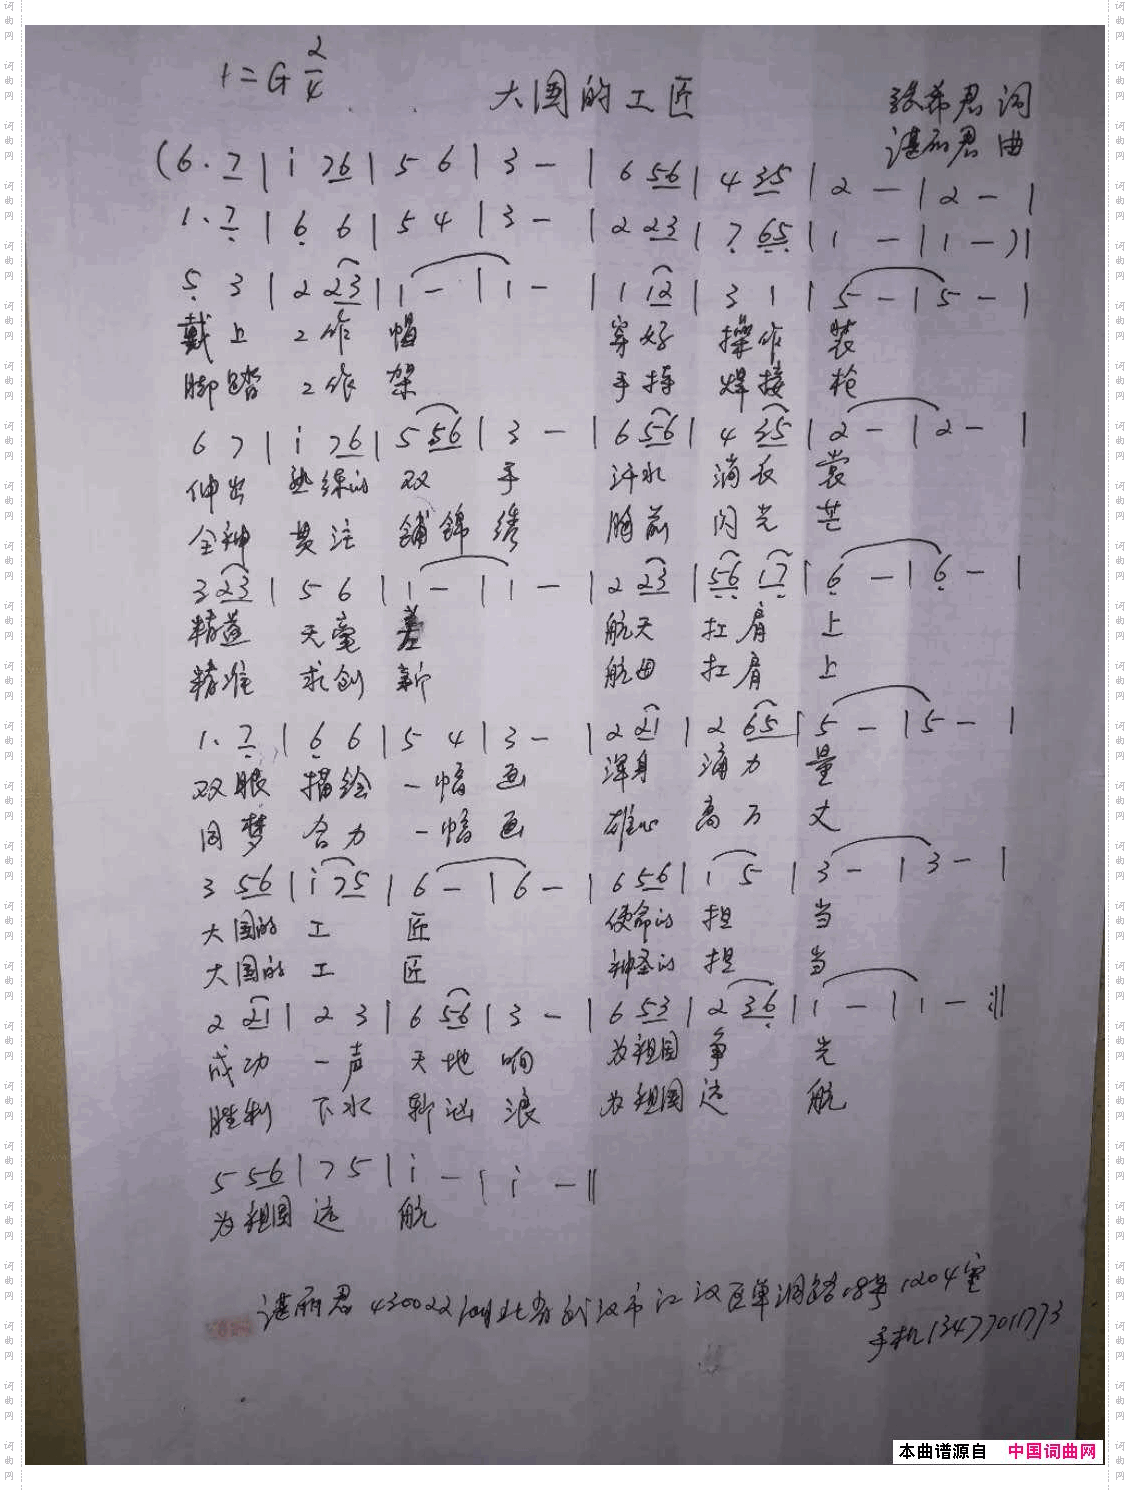 1=G 2/4
大国的工匠
张希君 词
谌丽君 曲
(6. 7 | i 76 | 5 6 | 3 - | 6 56 | 4 35 | 2 - | 2 - |
1. 7 | 6 6 | 5 4 | 3 - | 2 23 | 7 65 | 1 - | 1 - ) |
5 3 | 2 23 | 1 - | 1 - | 1 12 | 3 1 | 5 - | 5 - |
戴上 工作 帽 穿好 操作 装
脚踏 工作 架 手持 焊接 枪
6 7 | i 76 | 5 56 | 3 - | 6 56 | 4 35 | 2 - | 2 - |
伸出 熟练的 双 手 汗水 淌衣 裳
全神 贯注 铺锦 绣 胸前 闪光 芒
3 23 | 5 6 | 1 - | 1 - | 2 23 | 56 17 | 6 - | 6 - |
精益 无毫 差 航天 扛肩 上
精准 求创 新 航母 扛肩 上
1. 7 | 6 6 | 5 4 | 3 - | 2 21 | 2 65 | 5 - | 5 - |
双眼 描绘 一幅 画 浑身 涌力 量
同梦 合力 一幅 画 雄心 高万 丈
3 56 | i 75 | 6 - | 6 - | 6 56 | i 5 | 3 - | 3 - |
大国的 工 匠 使命的 担 当
大国的 工 匠 神圣的 担 当
2 21 | 2 3 | 6 56 | 3 - | 6 53 | 2 36 | 1 - | 1 - :||
成功 一声 天地 响 为祖国 争 光
胜利 下水 斩汹 浪 为祖国 远 航
5 56 | 7 5 | i - | i - ||
为祖国 远 航
谌丽君 430022 湖北省武汉市江汉区单洞路18号1204室
手机13477011773
本曲谱源自 中国词曲网